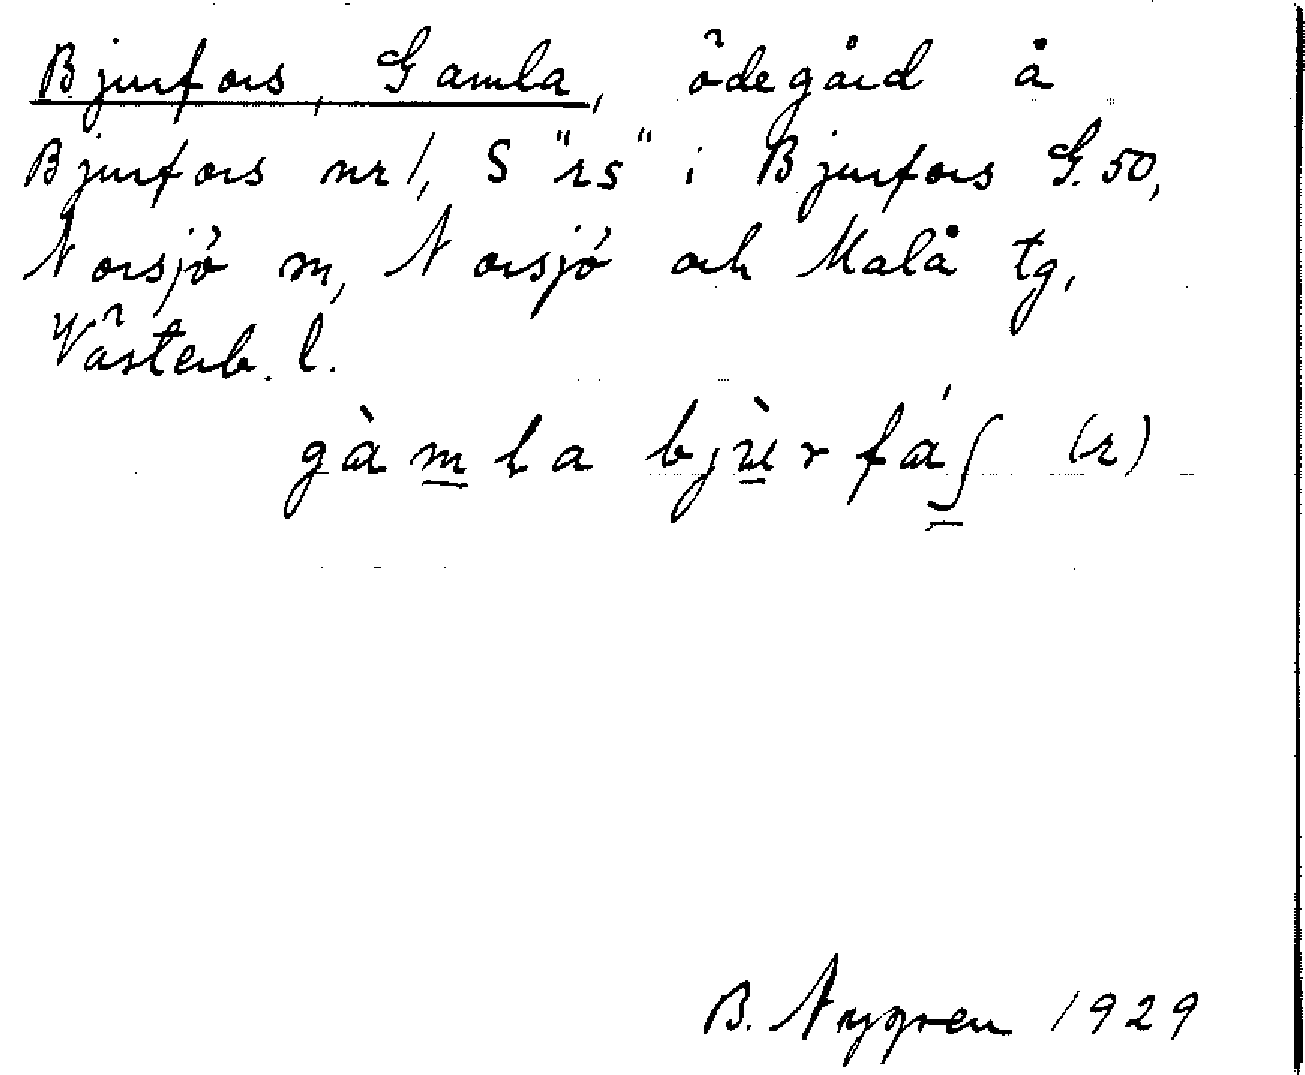 Bjurfors, Gamla, ödegård å
Bjurfors nr 1, S "rs" i Bjurfors G. 50,
Norsjö m, Norsjö och Malå tg,
Västerb. l.
gàmla bjùrfáʃ (r)
B. Nygren 1929